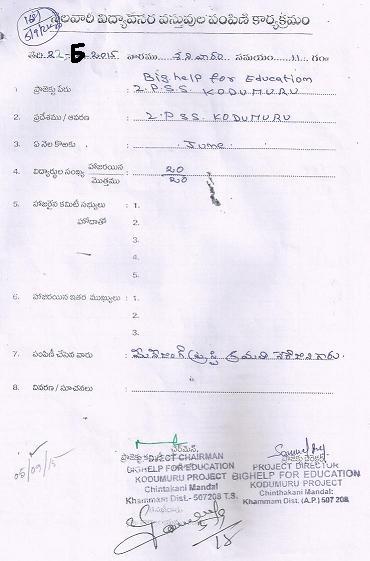 నెలవారి విద్యావసర వస్తువుల పంపిణి కార్యక్రమం
5/9/2015
తేది: 22-6-2015 వారము శనివారం సమయం 11 గం॥
Bighelp for Education
1. ప్రాజెక్టు పేరు : Z.P.S.S. KODUMURU
2. ప్రదేశము / ఆవరణ : Z.P SS. KODUMURU
3. ఏ నెల కొఱకు : June
4. విద్యార్థుల సంఖ్య హాజరయిన : 20
మొత్తము 20
5. హాజరైన కమిటీ సభ్యులు : 1.
హోదాతో 2.
3.
4.
5.
6. హాజరయిన ఇతర ముఖ్యులు : 1.
2.
3.
7. పంపిణీ చేసిన వారు : మేనేజింగ్ ట్రస్టి శ్రీమతి గారు.
8. వివరణ / సూచనలు :
05/09/15
ఛైర్మెన్,
PROJECT CHAIRMAN
BIGHELP FOR EDUCATION
KODUMURU PROJECT
Chintakani Mandal
Khammam Dist.- 507208 T.S.
PROJECT DIRECTOR
BIGHELP FOR EDUCATION
KODUMURU PROJECT
Chinthakani Mandal:
Khammam Dist (A.P.) 507 208